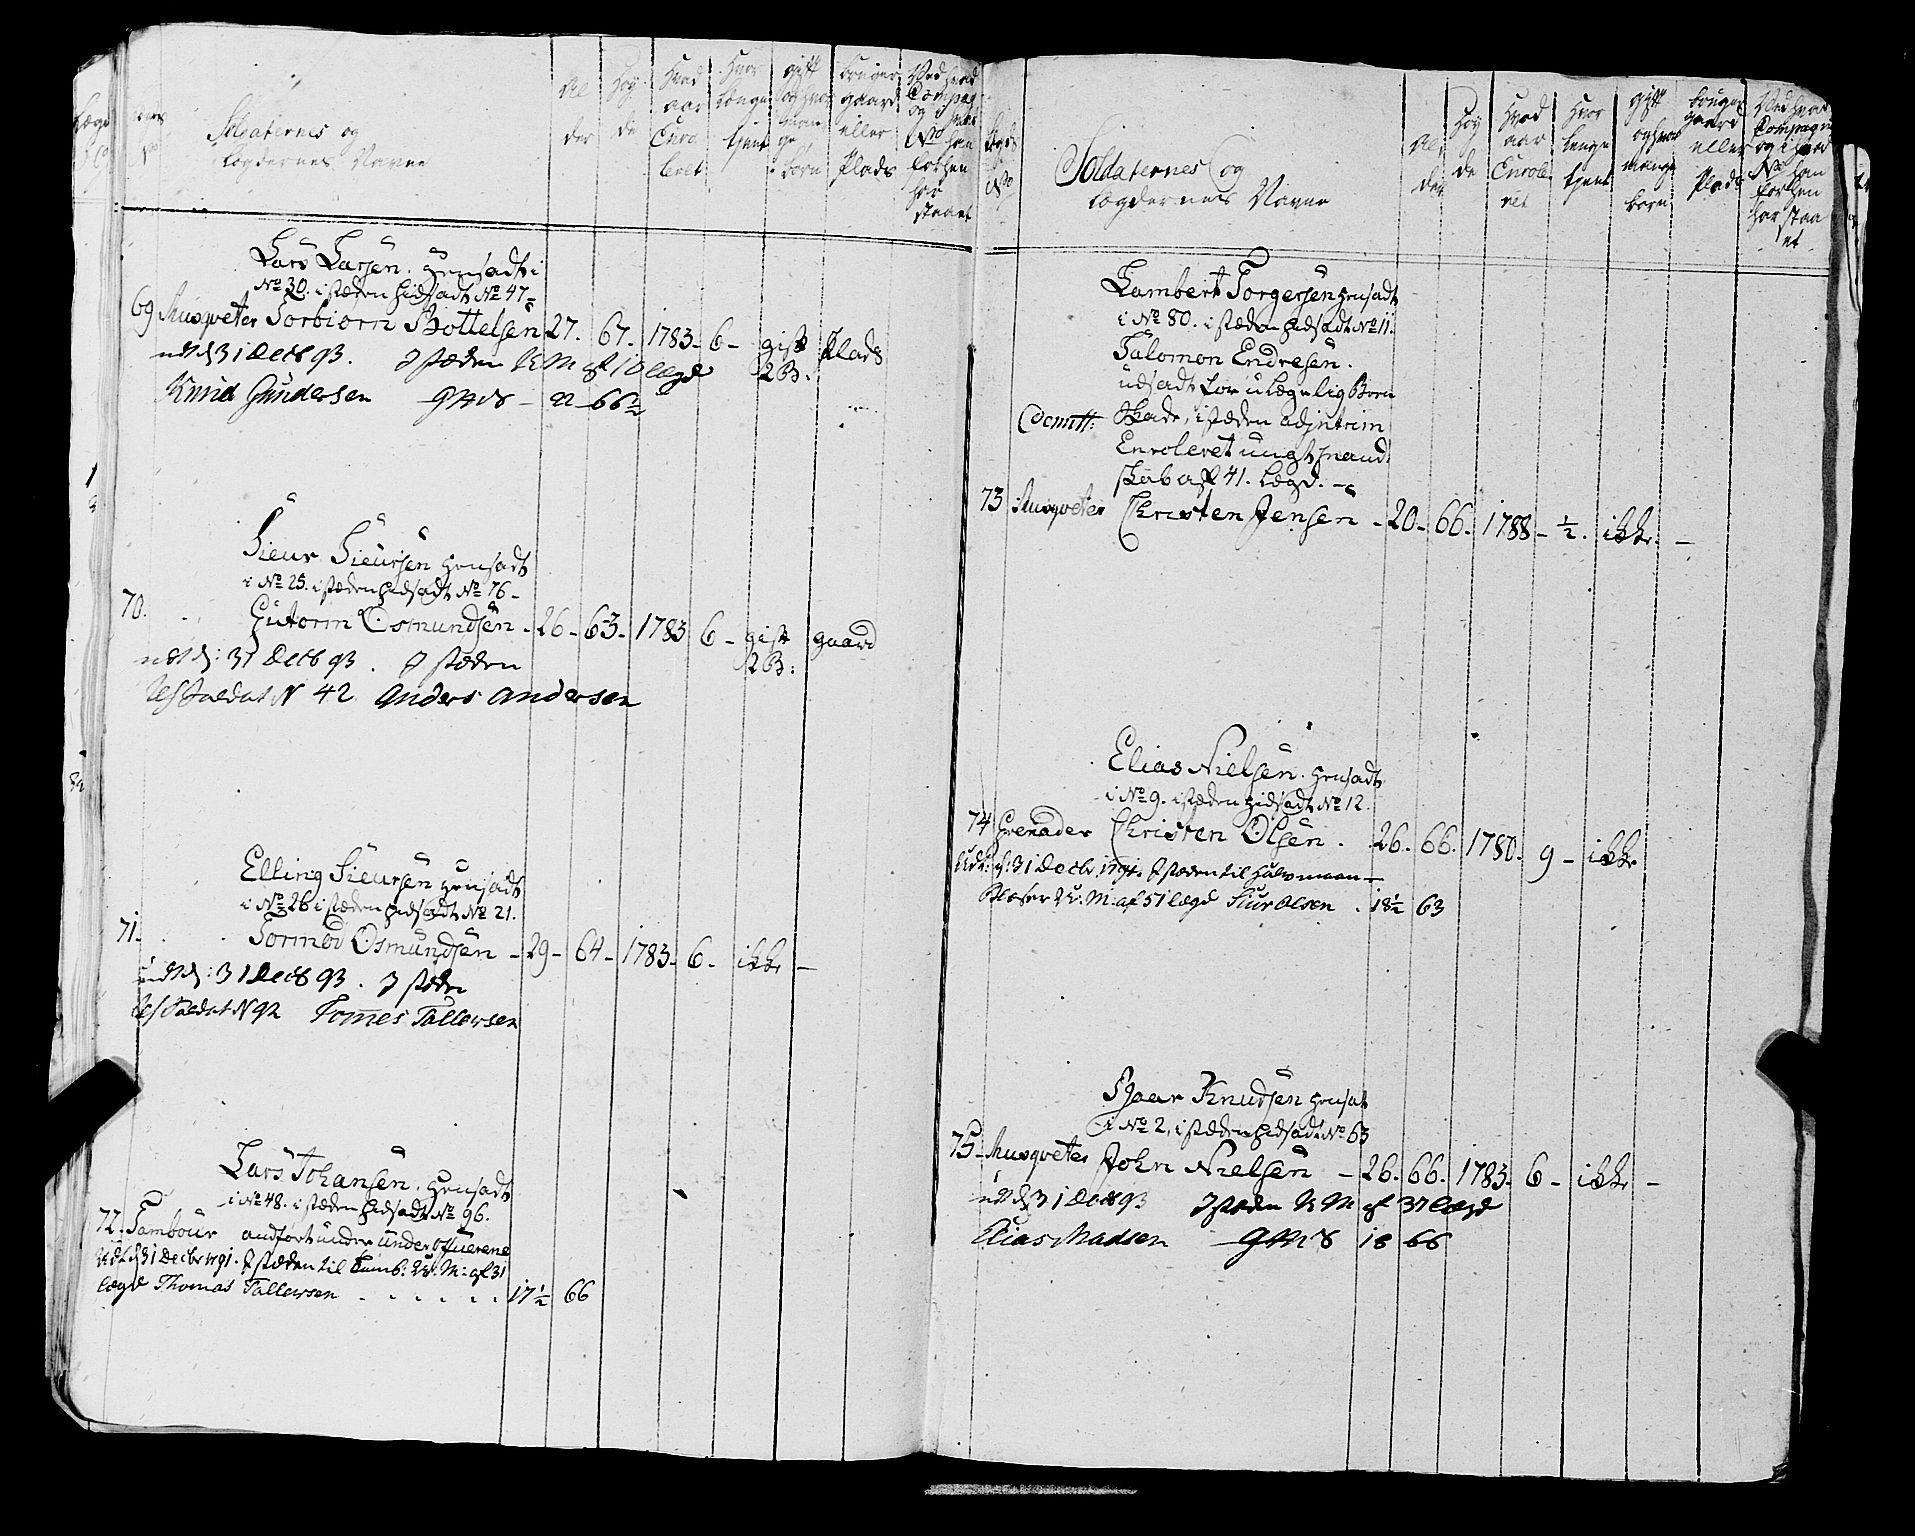 Soldaternes og
Lægdernes Navne
Al
der
Høy
de
Hvad
aar
Enro
leret
Hvor
længe
tjent
gift
og hvor
mange
børn
bruger
gaard
eller
Plads
Ved hvad
Compag
og i hvad
No han
forhen
har
staaet
Lars Larsen. hensadt i
No 30. i stæden hidsadt No 47-
69 Musqveter Torbiorn Bottelsen 27. 67. 1783- 6- gift Plads
udt d 31 Decb 93. I stæden U M af 10 lægd 2 B.
Knud Gundersen 22 66½
Sieur Sieursen hensadt
i No 25. i stæden hidsadt No 76-
70. Gutorm Osmundsen - 26- 63- 1783 6- gift gaard
udt d: 31 Decb 93. I stæden 2 B:
Soldat N 42 Anders Andersen
Elling Sieursen hensadt
i No 26 i stæden hidsadt No 21.
71. Tormod Osmundsen - 29- 64- 1783- 6- ikke -
udt d: 31 Decb 93. I stæden
Soldat N 92 Tomes Tallersen
Lars Johansen. hensadt
i No 48. i stæden hidsadt No 96.
72. Tambour anført under under officererne
Udt d 31 Decbr 1791. I stæden til Tamb: U: M: af 31
lægd Thomas Tallersen 17½ 66
Lægd
No
Soldaternes og
Lægdernes Navne
Al
der
Høy
de
Hvad
aar
Enrole
ret
Hvor
længe
tjent
gift
og hvor
mange
børn
bruger
gaard
eller
Plads
Ved hvad
Compagnie
og i hvad
No han
forhen
har staa
et
Lambert Torgersen hensadt
i No 80. i stæden hidsadt No 11.
Salomon Endresen.
udsadt for ulægelig Been
Skade, i stæden ad jntrim
Enroleret ungt mand
skab aff 41. Lægd. -
73 Musqveter Christen Jensen - 20- 66. 1788- ½. ikke. -
Elias Nielsen. hensadt
i No 9. i stæden hidsadt No 12.
74 Grenader Christen Olsen. 26. 66. 1780. 9- ikke
Udt: d: 31 Decbr 1791 I stæden til Halvmaan-
blæser U: M: af 51 lægd Siur Olsen. 18½ 63
Knudsen hensat
i No 2, i stæden hidsadt No 63
75- Musqveter John Nielsen - 26. 66. 1783. 6- ikke -
udt d 31 Decb 93 I stæden U M af 37 lægd
Elias Madsen 18 66